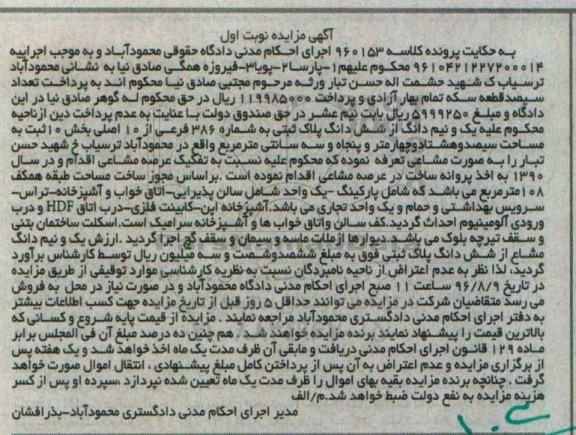 آگهی مزایده نوبت اول
به حکایت پرونده کلاسه ۹۶۰۱۵۳ اجرای احکام مدنی دادگاه حقوقی محمودآباد و به موجب اجراییه
۹۶۱۰۴۲۱۲۲۷۲۰۰۰۱۴ محکوم علیهم۱-پارسا۲-پویا۳-فیروزه همگی صادق نیا به نشانی محمودآباد
ترسیاب ک شهید حشمت اله حسن تبار ورثه مرحوم مجتبی صادق نیا محکوم اند به پرداخت تعداد
سیصدقطعه سکه تمام بهار آزادی و پرداخت ۱۱۹۹۸۵۰۰۰ ریال در حق محکوم له گوهر صادق نیا در این
دادگاه و مبلغ ۵۹۹۹۲۵۰ ریال بابت نیم عشر در حق صندوق دولت با عنایت به عدم پرداخت دین ازناحیه
محکوم علیه یک و نیم دانگ ازشش دانگ پلاک ثبتی به شماره ۳۸۶ فرعی از ۱۰ اصلی بخش ۱۰ثبت به
مساحت سیصدوهشتادوچهارمتر و پنجاه و سه سانتی مترمربع واقع در محمودآباد ترسیاب خ شهید حسن
تبار را به صورت مشاعی تعرفه نموده که محکوم علیه نسبت به تفکیک عرصه مشاعی اقدام و در سال
۱۳۹۰ به اخذ پروانه ساخت در عرصه مشاعی اقدام نموده است .براساس مجوز ساخت مساحت طبقه همکف
۱۰۸مترمربع می باشد که شامل پارکینگ -یک واحد شامل سالن پذیرایی-اتاق خواب و آشپزخانه-تراس-
سرویس بهداشتی و حمام و یک واحد تجاری می باشد.آشپزخانه اپن-کابینت فلزی-درب اتاق HDF و درب
ورودی آلومینیوم احداث گردید.کف سالن واتاق خواب ها و آشپزخانه سرامیک است.اسکلت ساختمان بتنی
و سقف تیرچه بلوک می باشد.دیوارها ازملات ماسه و سیمان و سقف گچ اجرا گردید .ارزش یک و نیم دانگ
مشاع از شش دانگ پلاک ثبتی فوق به مبلغ ششصدوشصت و سه میلیون ریال توسط کارشناس برآورد
گردید، لذا نظر به عدم اعتراض از ناحیه نامبردگان نسبت به نظریه کارشناسی موارد توقیفی از طریق مزایده
در تاریخ ۹۶/۸/۹ ساعت ۱۱ صبح اجرای احکام مدنی دادگاه محمودآباد و در صورت نیاز در محل به فروش
می رسد متقاضیان شرکت در مزایده می توانند حداقل ۵ روز قبل از تاریخ مزایده جهت کسب اطلاعات بیشتر
به دفتر اجرای احکام مدنی دادگستری محمودآباد مراجعه نمایند . مزایده از قیمت پایه شروع و کسانی که
بالاترین قیمت را پیشنهاد نمایند برنده مزایده خواهند شد. هم چنین ده درصد مبلغ آن فی المجلس برابر
ماده ۱۲۹ قانون اجرای احکام مدنی دریافت و مابقی آن ظرف مدت یک ماه اخذ خواهد شد و یک هفته پس
از برگزاری مزایده و عدم اعتراض به آن پس از پرداختن کامل مبلغ پیشنهادی ، انتقال اموال صورت خواهد
گرفت . چنانچه برنده مزایده بقیه بهای اموال را ظرف مدت یک ماه تعیین شده نپردازد ،سپرده او پس از کسر
هزینه مزایده به نفع دولت ضبط خواهد شد.م/الف
مدیر اجرای احکام مدنی دادگستری محمودآباد-بذرافشان